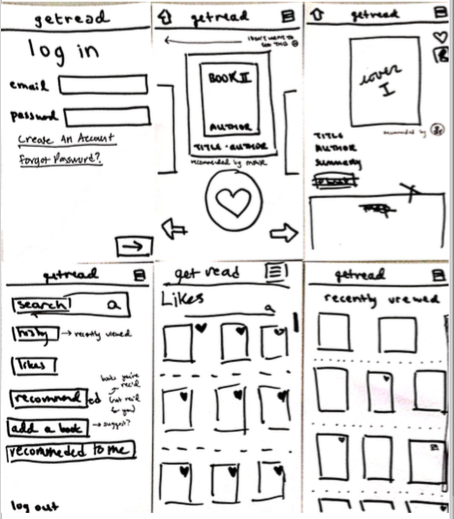 getread
log in
email
password
Create An Account
Forgot Password?
getread
I don't want to
see this
BOOK II
AUTHOR
TITLE · AUTHOR
recomended by
getread
cover
I
recomended by
TITLE
AUTHOR
summary
getread
search
→ recently viewed
likes
recommended
books you've
rec'd
(not rec'd
for you)
add a book → suggest?
recommeded to me
log out
get read
Likes
getread
recently viewed